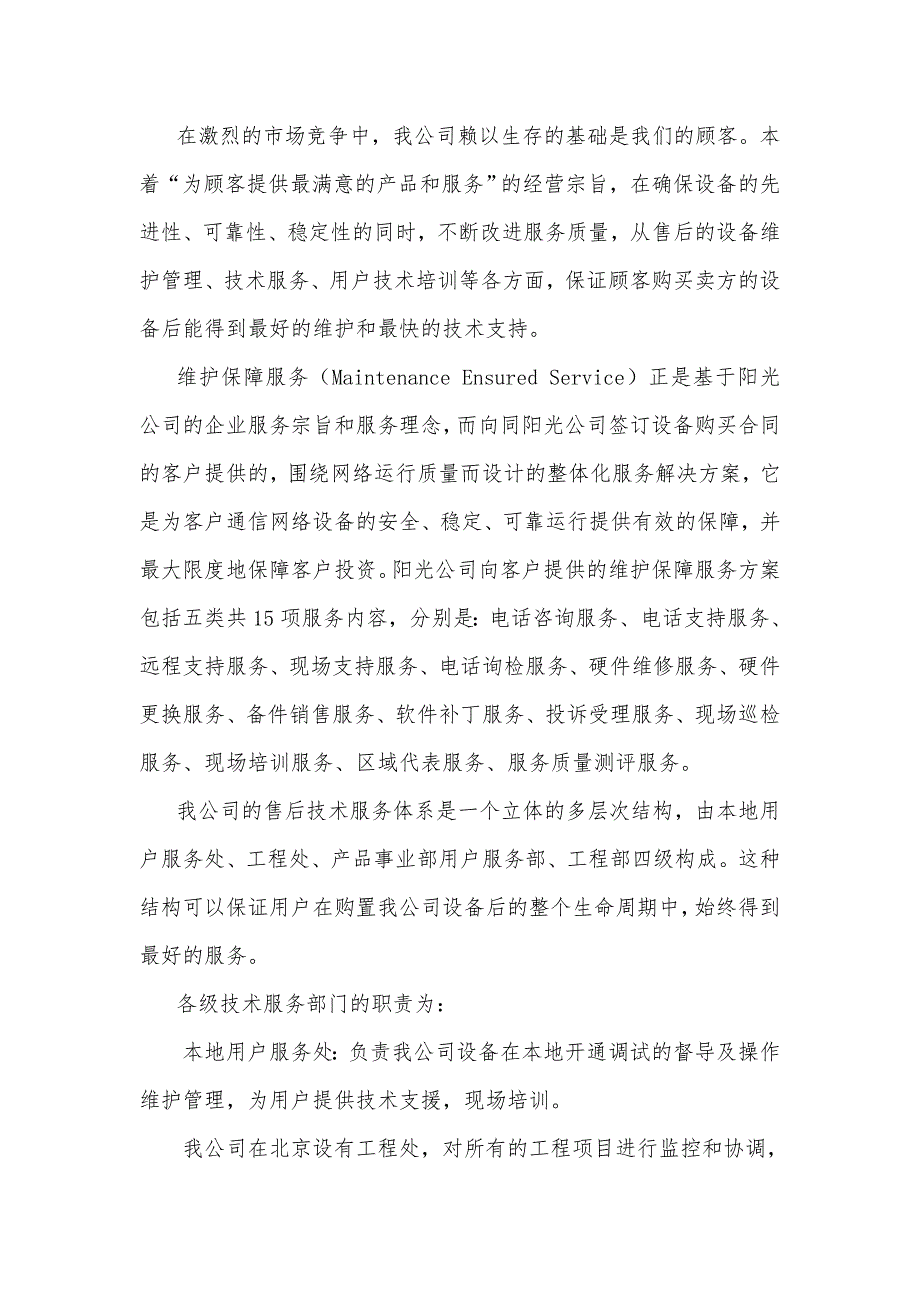 在激烈的市场竞争中，我公司赖以生存的基础是我们的顾客。本
着“为顾客提供最满意的产品和服务”的经营宗旨，在确保设备的先
进性、可靠性、稳定性的同时，不断改进服务质量，从售后的设备维
护管理、技术服务、用户技术培训等各方面，保证顾客购买卖方的设
备后能得到最好的维护和最快的技术支持。
维护保障服务（Maintenance Ensured Service）正是基于阳光
公司的企业服务宗旨和服务理念，而向同阳光公司签订设备购买合同
的客户提供的，围绕网络运行质量而设计的整体化服务解决方案，它
是为客户通信网络设备的安全、稳定、可靠运行提供有效的保障，并
最大限度地保障客户投资。阳光公司向客户提供的维护保障服务方案
包括五类共 15 项服务内容，分别是：电话咨询服务、电话支持服务、
远程支持服务、现场支持服务、电话询检服务、硬件维修服务、硬件
更换服务、备件销售服务、软件补丁服务、投诉受理服务、现场巡检
服务、现场培训服务、区域代表服务、服务质量测评服务。
我公司的售后技术服务体系是一个立体的多层次结构，由本地用
户服务处、工程处、产品事业部用户服务部、工程部四级构成。这种
结构可以保证用户在购置我公司设备后的整个生命周期中，始终得到
最好的服务。
各级技术服务部门的职责为：
本地用户服务处：负责我公司设备在本地开通调试的督导及操作
维护管理，为用户提供技术支援，现场培训。
我公司在北京设有工程处，对所有的工程项目进行监控和协调，